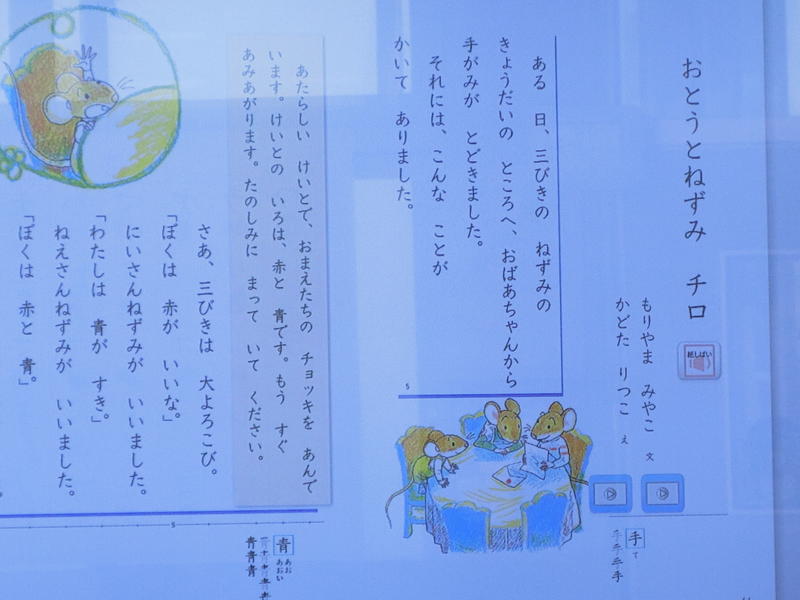 おとうとねずみ　チロ
紙しばい
もりやま　みやこ　文
かどた　りつこ　え
ある　日、三びきの　ねずみの
きょうだいの　ところへ、おばあちゃんから
手がみが　とどきました。
それには、こんな　ことが
かいて　ありました。
5
あたらしい　けいとで、おまえたちの　チョッキを　あんで
います。けいとの　いろは、赤と　青です。もう　すぐ
あみあがります。たのしみに　まって　いて　ください。
さあ、三びきは　大よろこび。
「ぼくは　赤が　いいな。」
にいさんねずみが　いいました。
「わたしは　青が　すき。」
ねえさんねずみが　いいました。
「ぼくは　赤と　青。」
5
手　て
青　あお　あおい